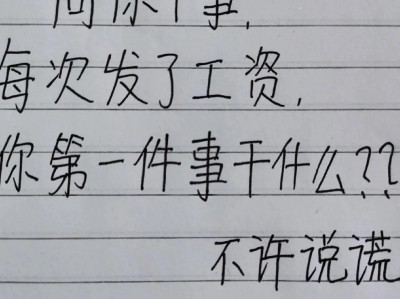 问你个事,
每次发了工资,
你第一件事干什么??
不许说谎